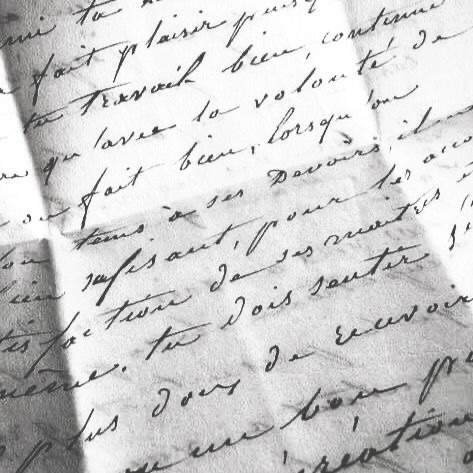 fait plaisir puisq
tu travail bien, continue
qu'avec la volonté de
on fait bien, lorsqu'on
tems à ses Devoirs, il
bien sufisant, pour les acc
tisfaction de ses maitres e
même. tu dois sentir
plus doux de reuvoir
un bon p
récréation